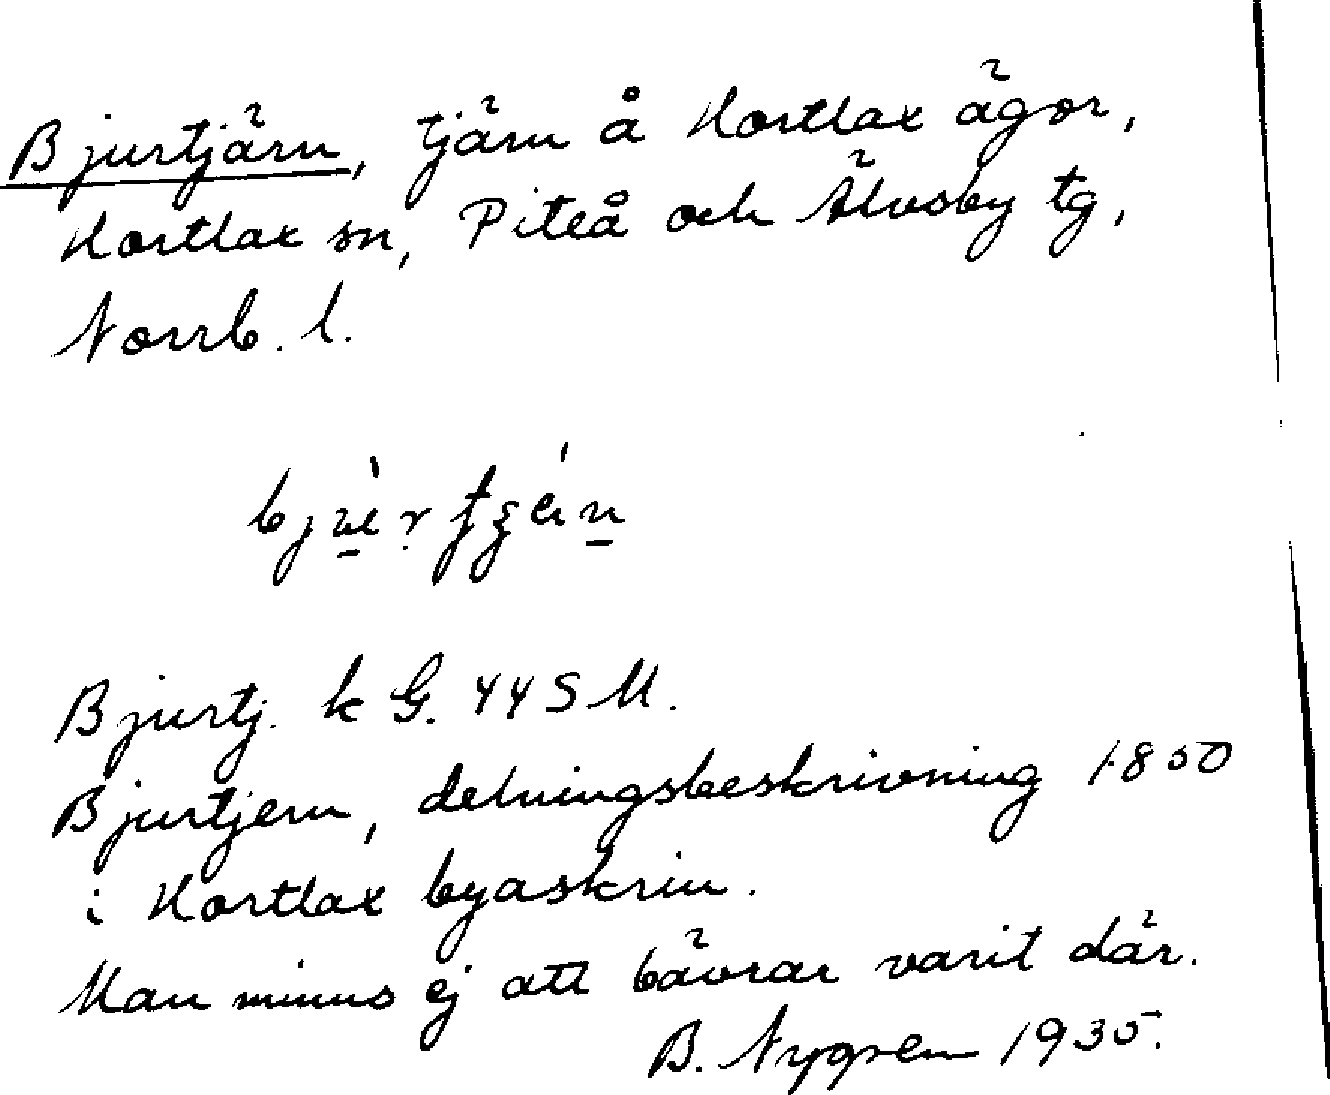 Bjurtjärn, tjärn å Hortlax ägor,
Hortlax sn, Piteå och Älvsby tg,
Norrb. l.
Bjurtj. k G. 44 S M.
Bjurtjern, delningsbeskrivning 1850
i Hortlax byaskrin.
Man minns ej att bävrar varit där.
B. Nygren 1935.